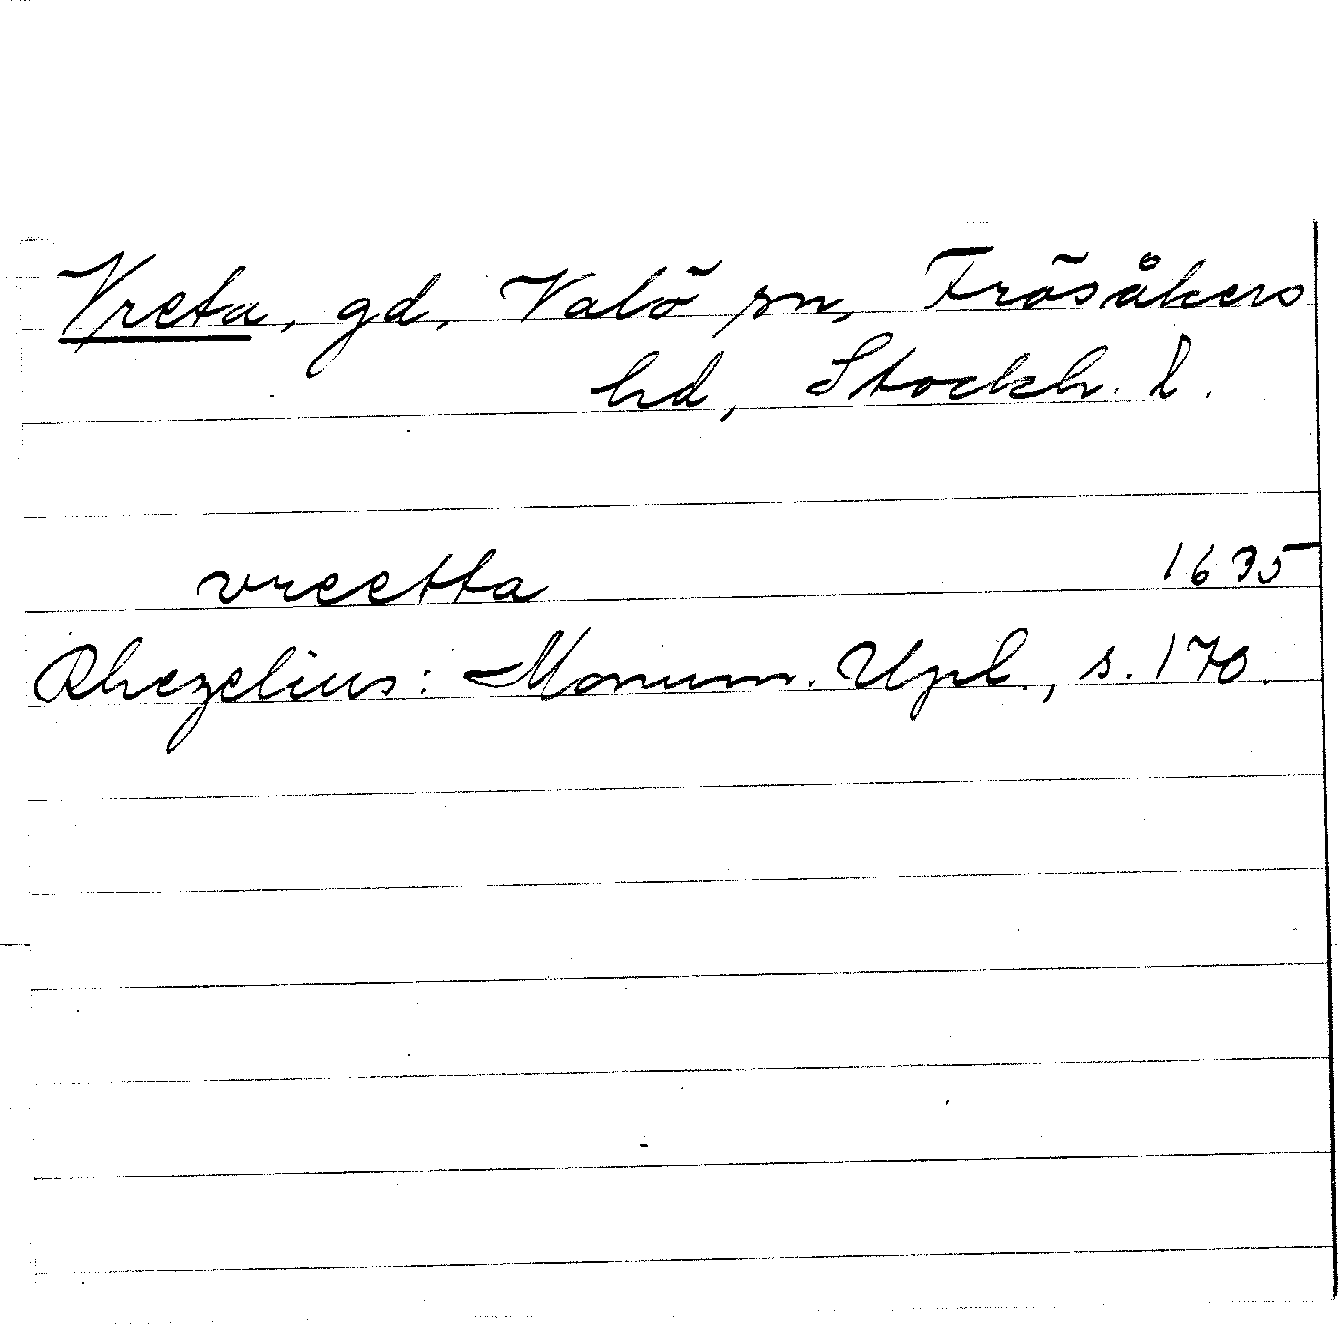 Vreta, gd, Valö sn, Frösåkers
hd, Stockh. l.
vreetta 1635
Rhezelius: Monum. Upl., s. 170.